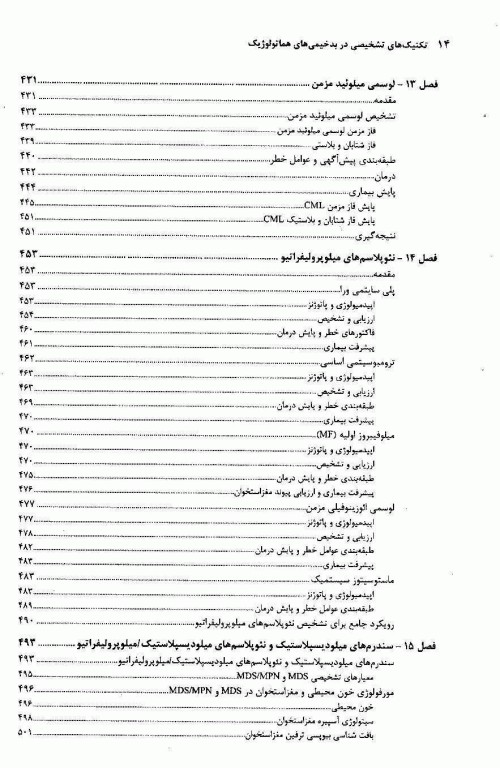 ۱۴ تکنیک‌های تشخیصی در بدخیمی‌های هماتولوژیک
فصل ۱۳ - لوسمی میلوئید مزمن ۴۳۱
مقدمه ۴۳۱
تشخیص لوسمی میلوئید مزمن ۴۳۳
فاز مزمن لوسمی میلوئید مزمن ۴۳۳
فاز شتابان و بلاستی ۴۳۹
طبقه‌بندی پیش‌آگهی و عوامل خطر ۴۴۰
درمان ۴۴۲
پایش بیماری ۴۴۴
پایش فاز مزمن CML ۴۴۵
پایش فاز شتابان و بلاستیک CML ۴۵۱
نتیجه‌گیری ۴۵۱
فصل ۱۴ - نئوپلاسم‌های میلوپرولیفراتیو ۴۵۳
مقدمه ۴۵۳
پلی سایتمی ورا ۴۵۳
اپیدمیولوژی و پاتوژنز ۴۵۳
ارزیابی و تشخیص ۴۵۴
فاکتورهای خطر و پایش درمان ۴۶۰
پیشرفت بیماری ۴۶۱
ترومبوسیتمی اساسی ۴۶۲
اپیدمیولوژی و پاتوژنز ۴۶۳
ارزیابی و تشخیص ۴۶۳
طبقه‌بندی خطر و پایش درمان ۴۶۹
پیشرفت بیماری ۴۷۰
میلوفیبروز اولیه (MF) ۴۷۰
اپیدمیولوژی و پاتوژنز ۴۷۰
ارزیابی و تشخیص ۴۷۰
طبقه‌بندی خطر و پایش درمان ۴۷۵
پیشرفت بیماری و ارزیابی پیوند مغزاستخوان ۴۷۶
لوسمی ائوزینوفیلی مزمن ۴۷۷
اپیدمیولوژی و پاتوژنز ۴۷۷
ارزیابی و تشخیص ۴۷۸
طبقه‌بندی عوامل خطر و پایش درمان ۴۸۲
پیشرفت بیماری ۴۸۳
ماستوسیتوز سیستمیک ۴۸۳
اپیدمیولوژی و پاتوژنز ۴۸۳
طبقه‌بندی خطر و پایش درمان ۴۸۹
رویکرد جامع برای تشخیص نئوپلاسم‌های میلوپرولیفراتیو ۴۹۰
فصل ۱۵ - سندرم‌های میلودیسپلاستیک و نئوپلاسم‌های میلودیسپلاستیک/میلوپرولیفراتیو ۴۹۳
سندرم‌های میلودیسپلاستیک و نئوپلاسم‌های میلودیسپلاستیک/میلوپرولیفراتیو ۴۹۳
معیارهای تشخیصی MDS و MDS/MPN ۴۹۵
مورفولوژی خون محیطی و مغزاستخوان در MDS و MDS/MPN ۴۹۶
خون محیطی ۴۹۶
سیتولوژی آسپیره مغزاستخوان ۴۹۸
بافت شناسی بیوپسی ترفین مغزاستخوان ۵۰۱